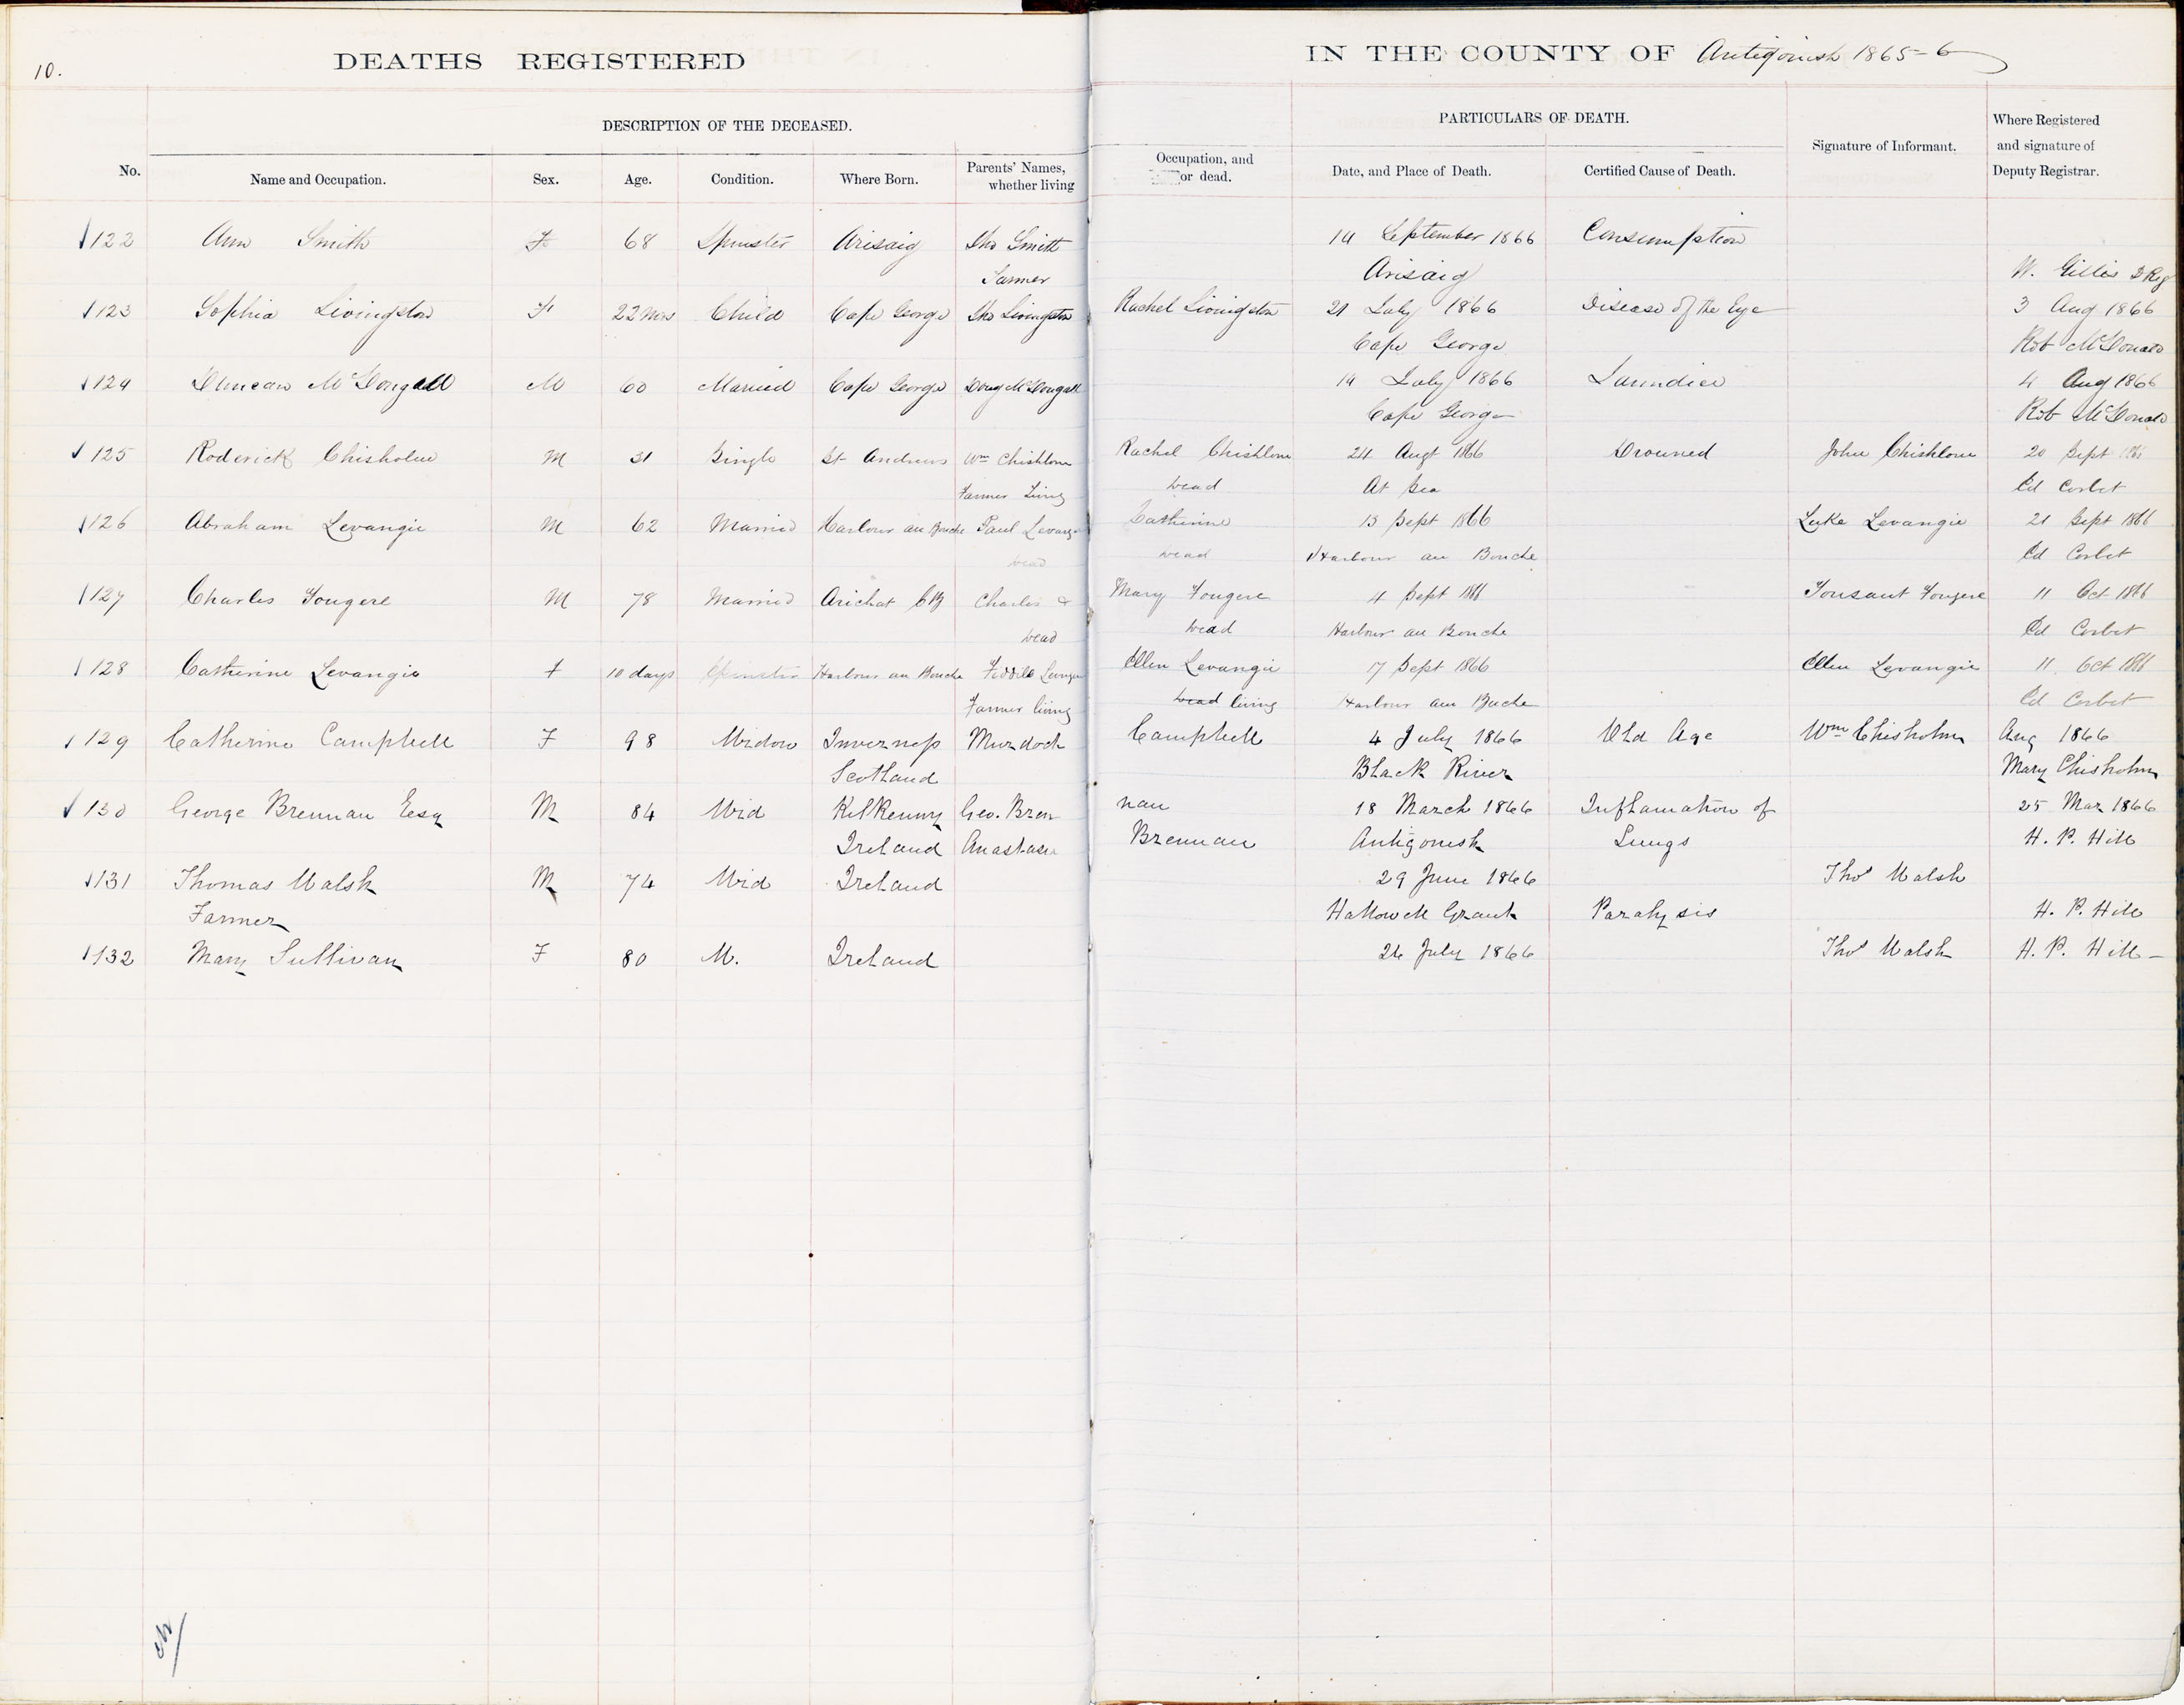 10.
DEATHS REGISTERED IN THE COUNTY OF Antigonish 1865-6
DESCRIPTION OF THE DECEASED.
PARTICULARS OF DEATH.
No.
Name and Occupation.
Sex.
Age.
Condition.
Where Born.
Parents' Names, whether living
Occupation, and or dead.
Date, and Place of Death.
Certified Cause of Death.
Signature of Informant.
Where Registered and signature of Deputy Registrar.
122 Ann Smith F 68 Spinster Arisaig Jno Smith 14 September 1866 Consumption
Farmer Arisaig W. Gillis D Reg
123 Sophia Livingston F 22 mos Child Cape George Jno Livingston Rachel Livingston 21 July 1866 Disease of the Eye 3 Aug 1866
Cape George Rob McDonald
124 Duncan McDougall M 60 Married Cape George Doug McDougall 14 July 1866 Jaundice 4 Aug 1866
Cape George Rob McDonald
125 Roderick Chisholm M 31 Single St Andrews Wm Chishlom Rachel Chishlom 24 Augt 1866 Drowned John Chishlom 20 Sept 1866
Farmer Living Dead At Sea Ed Corbet
126 Abraham Levangie M 62 Married Harbour au Bouche Paul Levangie Catherine 13 Sept 1866 Luke Levangie 21 Sept 1866
Dead Dead Harbour au Bouche Ed Corbet
127 Charles Fougere M 78 Married Arichat CB Charles & Mary Fougere 4 Sept 1866 Tousant Fougere 11 Oct 1866
Dead Dead Harbour au Bouche Ed Corbet
128 Catherine Levangie F 10 days Spinster Harbour au Bouche Ellen Levangie 17 Sept 1866 Ellen Levangie 11 Oct 1866
Farmer living Dead living Harbour au Buche Ed Corbet
129 Catherine Campbell F 98 Widow Inverness Murdoch Campbell 4 July 1866 Old Age Wm Chisholm Aug 1866
Scotland Black River Mary Chisholm
130 George Brennan Esq M 84 Wid Kilkenny Geo. Bren nan 18 March 1866 Inflamation of 25 Mar 1866
Ireland Anastasia Brennan Antigonish Lungs H. P. Hill
131 Thomas Walsh M 74 Wid Ireland 29 June 1866 Thos Walsh
Farmer Hallowell Grant Paralysis H. P. Hill
132 Mary Sullivan F 80 M. Ireland 26 July 1866 Thos Walsh H. P. Hill